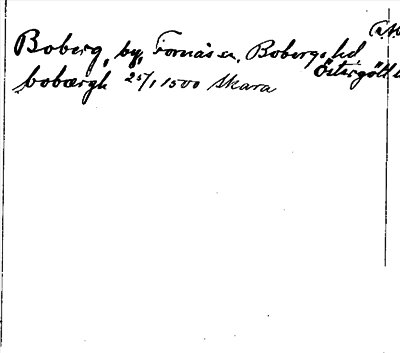 Boberg, by, Fornåsa sn, Bobergs hd
Östergötl
bobærgh 25/1 1500 Skara